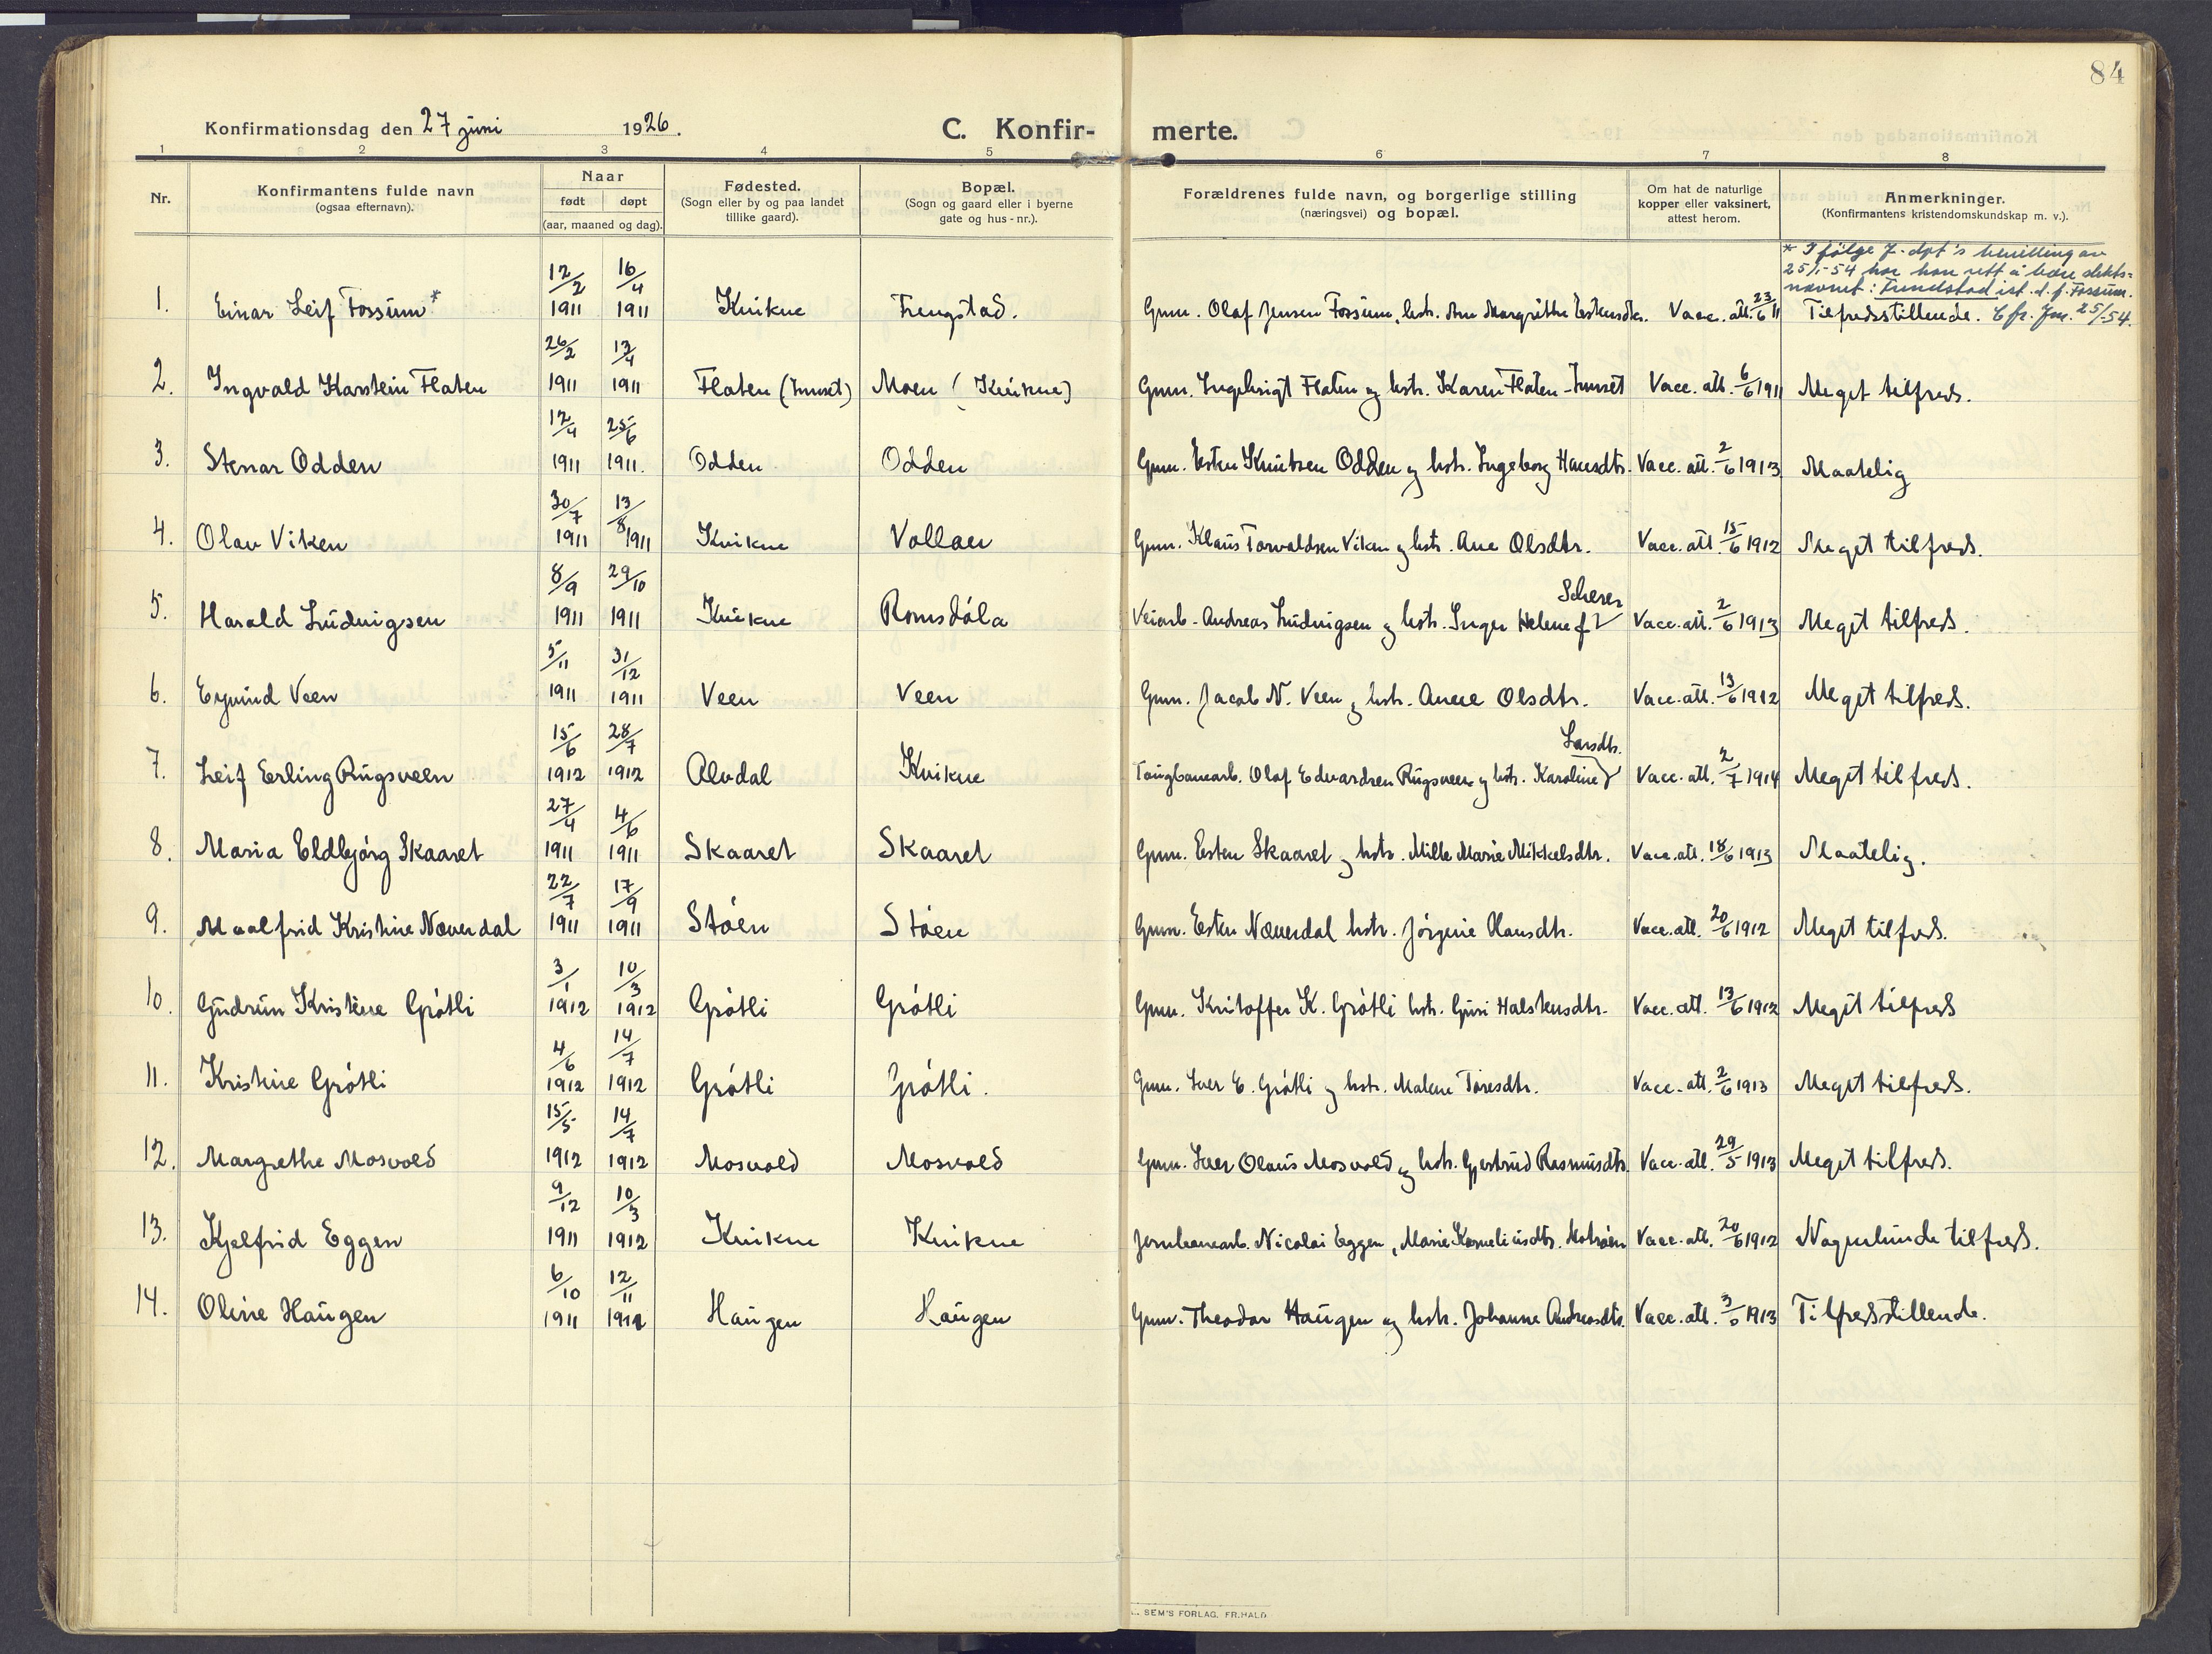 84
Konfirmationsdag den 27 juni 1926.
C. Konfir- merte.
1 2 3 4 5 6 7 8
Nr.
Konfirmantens fulde navn
(ogsaa efternavn).
Naar
født døpt
(aar, maaned og dag).
Fødested.
(Sogn eller by og paa landet
tillike gaard).
Bopæl.
(Sogn og gaard eller i byerne
gate og hus-nr.).
Forældrenes fulde navn, og borgerlige stilling
(næringsvei) og bopæl.
Om hat de naturlige
kopper eller vaksinert,
attest herom.
Anmerkninger.
(Konfirmantens kristendomskundskap m. v.).
* Ifølge J. dpt's bevilling av
25/1-54 har han rett å bære slekts-
navnet: ist. d. f. Fossum.
1. Einar Leif Fossum* 12/2 1911 16/4 1911 Kvikne Frengstad. Gmn. Olaf Jensen Fossum, hstr. Ane Margrethe Estensdtr. Vacc. att. 23/6 11 Tilfredsstillende. Cfr. Jnr. 25/-54.
2. Ingvald Karstein Flaten 26/2 1911 13/4 1911 Flaten (Tunset) Moen (Kvikne) Gmn. Ingebrigt Flaten og hstr. Karen Flaten - Tunset Vacc. att. 6/6 1911 Meget tilfreds.
3. Stenar Odden 12/4 1911 25/6 1911. Odden Odden Gmn. Esten Knutsen Odden og hstr. Ingeborg Hansdtr. Vacc. att. 2/6 1913 Maatelig
4. Olav Viken 30/7 1911 13/8 1911 Kvikne Vollan Gmn. Klaus Torvaldsen Viken og hstr. Ane Olsdtr. Vacc. att. 15/6 1912 Meget tilfreds.
5. Harald Ludvigsen 8/9 1911 29/10 1911 Kvikne Romsdøla Veiarb. Andreas Ludvigsen og hstr. Inger Helene f. Scherer Vacc. att. 2/6 1913 Meget tilfreds.
6. Eyvind Veen 5/11 1911 31/12 1911 Veen Veen Gmn. Jacob N. Veen og hstr. Anne Olsdtr. Vacc. att. 13/6 1912 Meget tilfreds.
7. Leif Erling Rugsveen 15/6 1912 28/7 1912 Alvdal Kvikne Taugbanearb. Olaf Edvardsen Rugsveen og hstr. Karoline Larsdtr. Vacc. att. 2/7 1914 Meget tilfreds.
8. Maria Eldbjørg Skaaret 27/4 1911 4/6 1911 Skaaret Skaaret Gmn. Esten Skaaret og hstr. Mille Marie Mikkelsdtr. Vacc. att. 18/6 1913 Maatelig.
9. Maalfrid Kristine Næverdal 22/7 1911 17/9 1911 Støen Støen Gmn. Esten Næverdal hstr. Jørgine Hansdtr. Vacc. att. 20/6 1912 Meget tilfreds.
10. Gudrun Kristine Grøtli 3/1 1912 10/3 1912 Grøtli Grøtli Gmn. Kristoffer K. Grøtli hstr. Guri Halstensdtr. Vacc. att. 13/6 1912 Meget tilfreds
11. Kristine Grøtli 4/6 1912 14/7 1912 Grøtli Grøtli. Gmn. Iver E. Grøtli og hstr. Malene Toresdtr. Vacc. att. 2/6 1913 Meget tilfreds.
12. Margrethe Mosvold 15/5 1912 14/7 1912 Mosvold Mosvold Gmn. Iver Olaus Mosvold og hstr. Gjertrud Rasmusdtr. Vacc. att. 29/5 1913 Meget tilfreds.
13. Kjelfrid Eggen 9/12 1911 10/3 1912 Kvikne Kvikne Jernbanearb. Nicolai Eggen, Marie Korneliusdtr. Motrøen Vacc. att. 20/6 1912 Nogenlunde tilfreds.
14. Oline Haugen 6/10 1911 12/11 Haugen Haugen Gmn. Theodor Haugen og hstr. Johanne Andreasdtr. Vacc. att. 1913 Tilfredsstillende.
SEM'S FORLAG, FR.HALD